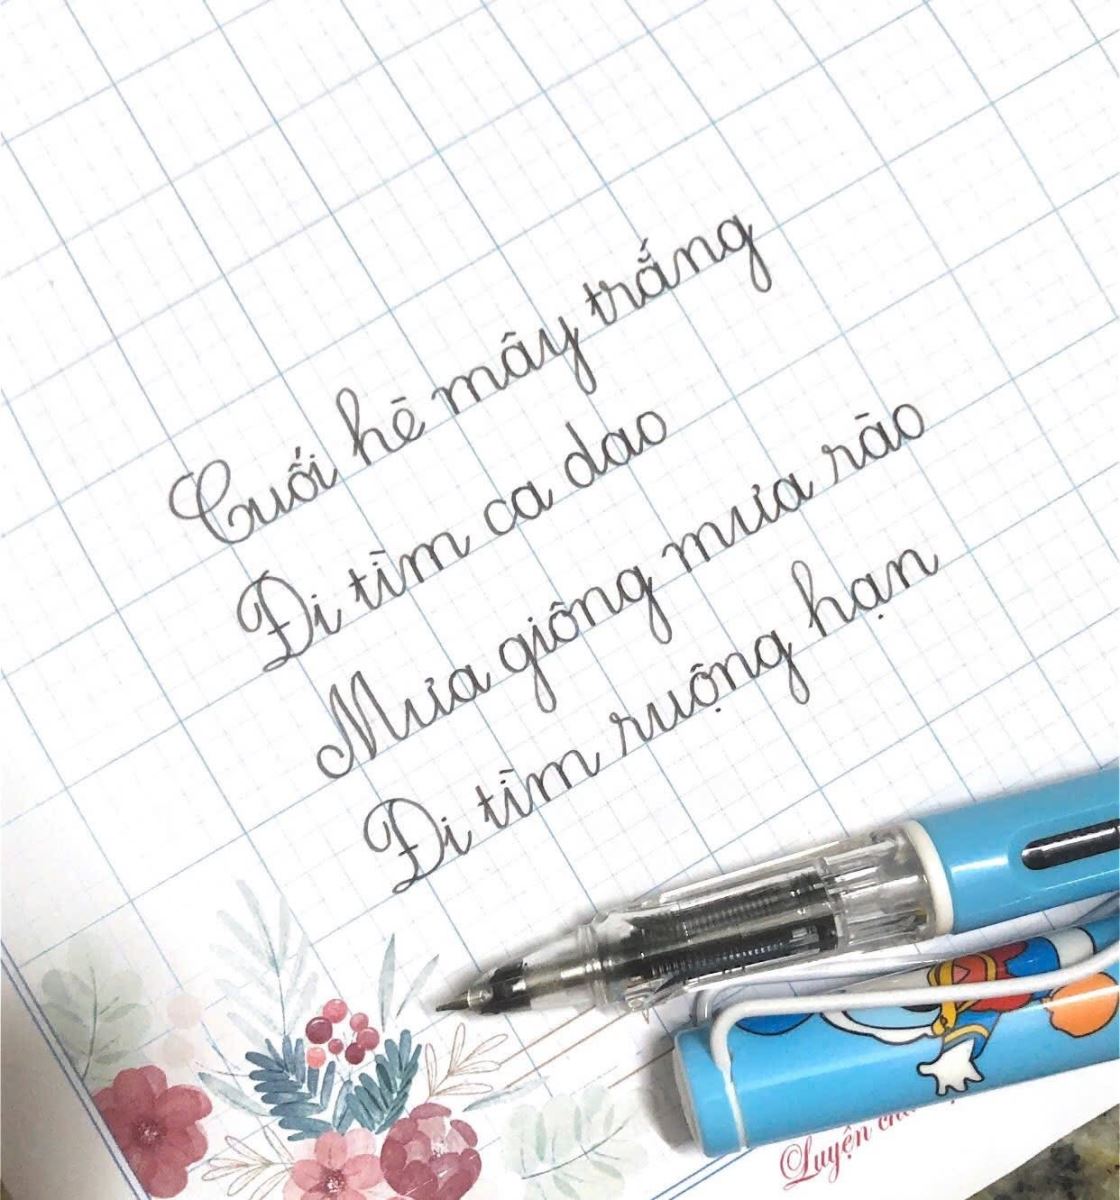 Cuối hè mây trắng
Đi tìm ca dao
Mưa giông mưa rào
Đi tìm ruộng hạn
Luyện